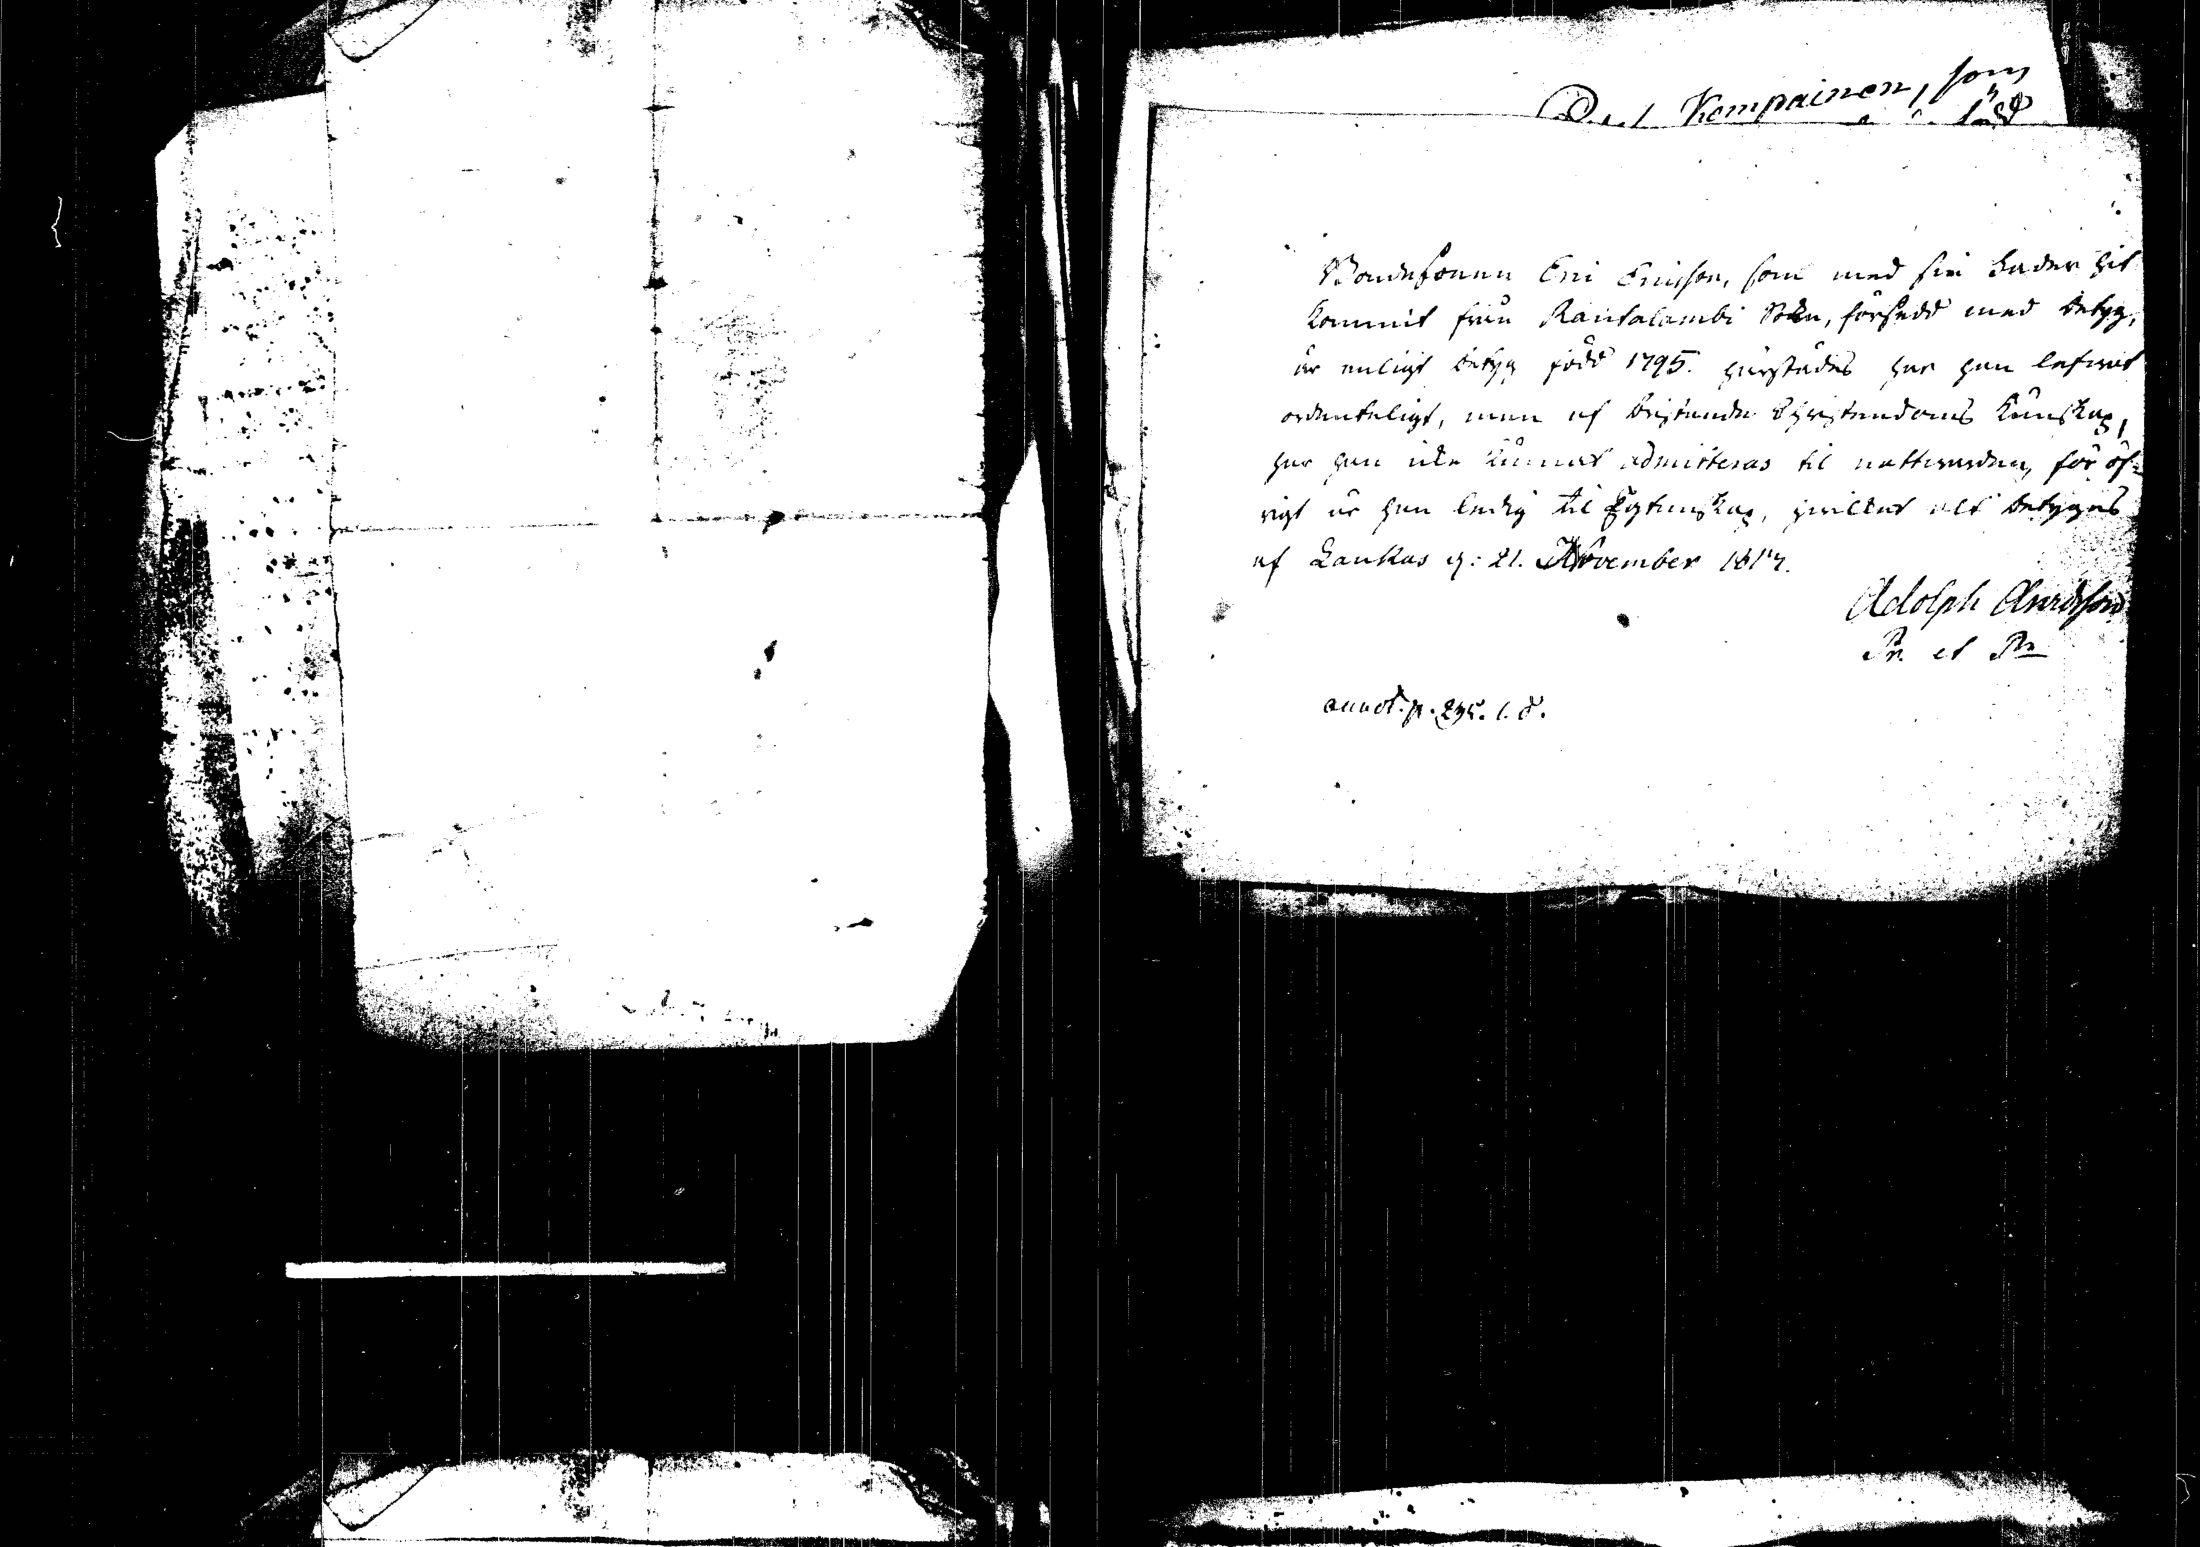 Kempainen, som
Bondesonen Eric Ericsson, som med sin Fader hit
kommit från Rautalambi Sokn, försedd med betyg,
är enligt betyg född 1795. härstädes har han lefwat
ordenteligt, men af bristande Christendoms kunskap,
har han icke kunnat admitteras til nattwarden, för öf-
rigt är han ledig til Egtenskap, hwilket alt betygas
af Laukas d: 21. November 1817.
Adolph
Pr. et Pr
annot. p. 295. l. d.